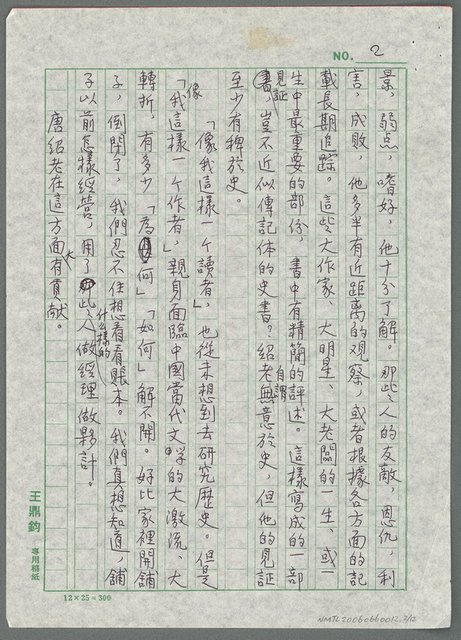 NO. 2
景，弱点，嗜好，他十分了解。那些人的友敵，恩仇，利
害，成敗，他多半有近距離的觀察，或者根據各方面的記
載長期追踪。這些大作家、大明星、大老闆的一生、或一
生中最重要的部份，書中有精簡的評述。這樣寫成的一部
見証
書，豈不近似傳記体的史書？紹老無意於史，但他的見証
自謂
至少有裨於史。
「像我這樣一个讀者」，也從未想到去研究歷史。但是
像
「我這樣一个作者」，親身面臨中國當代文學的大激流、大
轉折，有多少「為何」「如何」解不開。好比家裡開舖
子，倒閉了，我們忍不住想看看賬本。我們真想知道，舖
子以前怎樣經營，用了些人做經理做夥計，
什么樣的
唐紹老在這方面有大貢献。
王鼎鈞 專用稿紙
12×25=300
NMTL20060660012.2/12